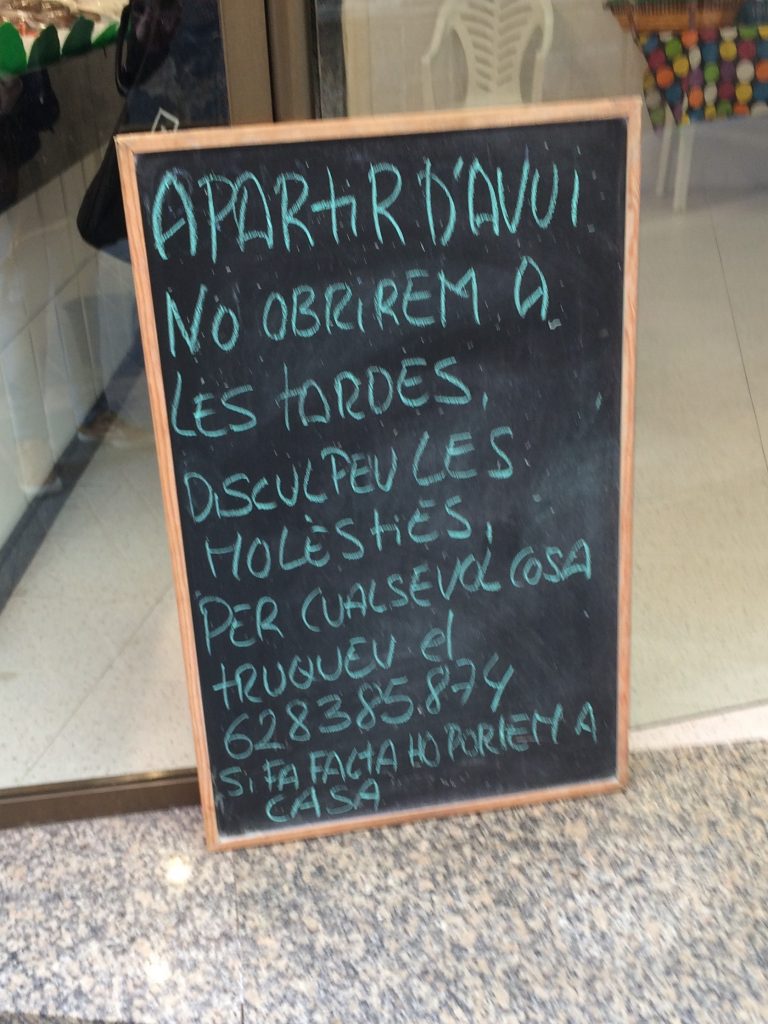 APARtiR D'AVUI
NO OBRIREM A
LES tARDES,
DISCULPEU LES
MOLÈStiES,
PER CUALSEVOL COSA
tRUQUEU el
628385.874
Si FA FALTA HO PORTEM A
CASA